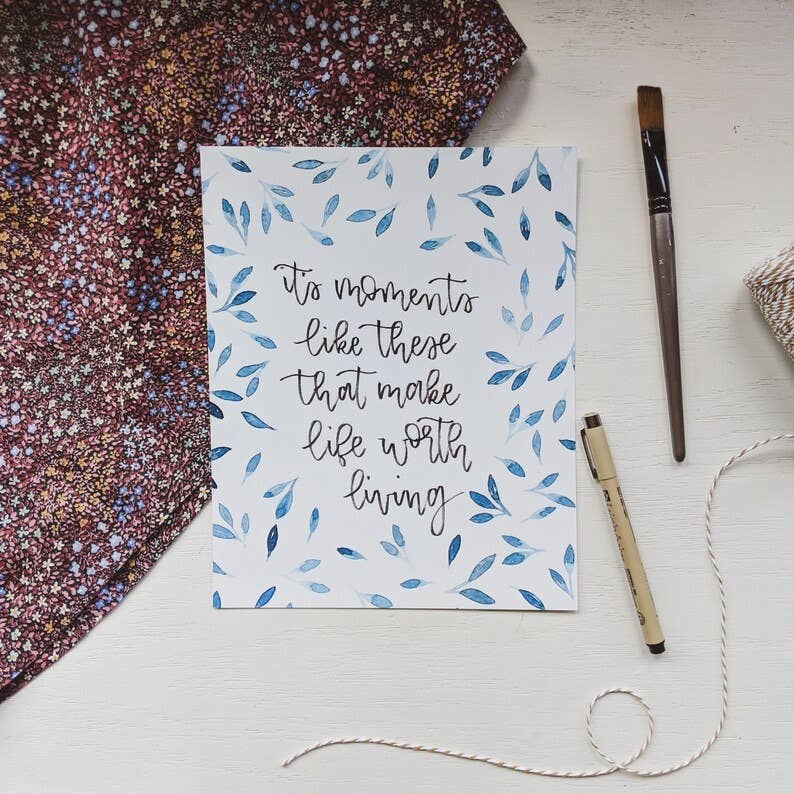 its moments
like these
that make
life worth
living